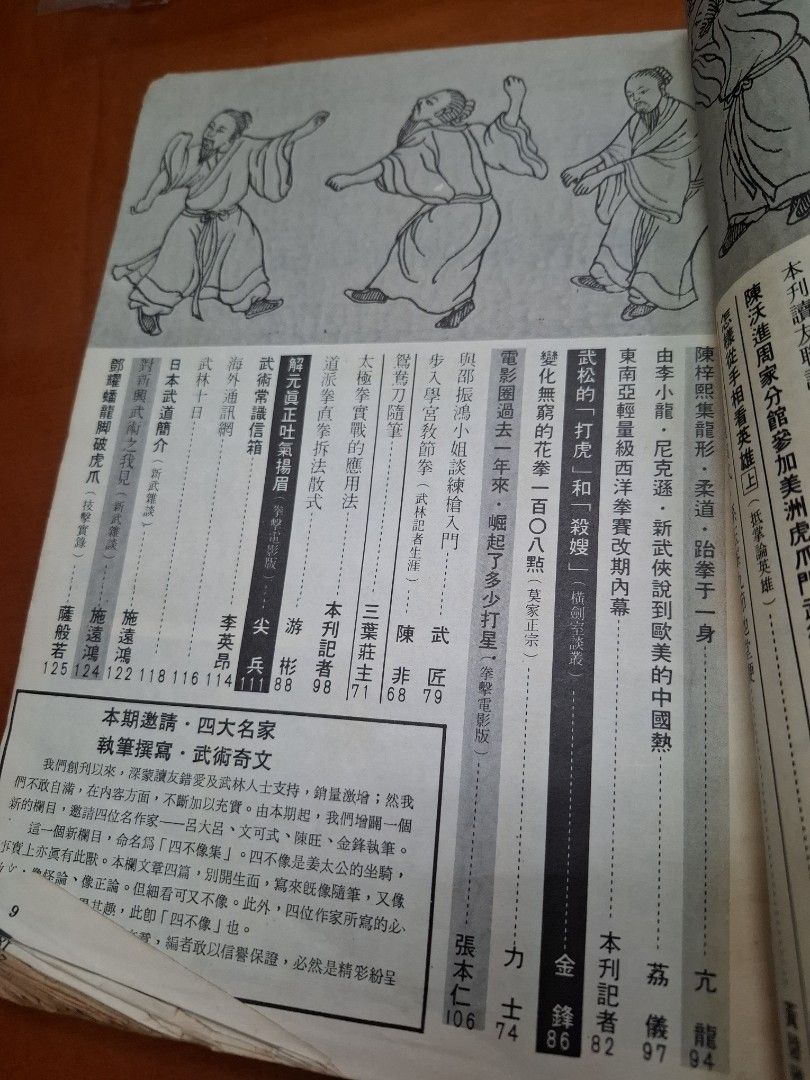 陳沃進周家分館參加美洲虎爪門
怎樣從手相看英雄(上)(抵掌論英雄)
陳梓熙集龍形・柔道・跆拳于一身……亢龍 94
由李小龍・尼克遜・新武俠說到歐美的中國熱……荔儀 97
東南亞輕量級西洋拳賽改期內幕……本刊記者 82
武松的「打虎」和「殺嫂」(橫劍室談叢)……金鋒 86
變化無窮的花拳一百〇八點(莫家正宗)……力士 74
電影圈過去一年來・崛起了多少打星・(拳擊電影版)……張本仁 106
與邵振鴻小姐談練槍入門……武匠 79
步入學宮教節拳(武林記者生涯)……陳非 68
鴛鴦刀隨筆……三葉莊主 71
太極拳實戰的應用法……本刊記者 98
道派拳直拳拆法散式……游彬 88
解元眞正吐氣揚眉(拳擊電影版)……尖兵 111
武術常識信箱……李英昂 114
海外通訊網……116
武林十日……118
日本武道簡介(新武雜談)……施遠鴻 122
對新興武術之我見(新武雜談)……施遠鴻 124
鄧耀蟠龍脚破虎爪(技擊實錄)……薩般若 125
本期邀請・四大名家
執筆撰寫・武術奇文
我們創刊以來,深蒙讀友錯愛及武林人士支持,銷量激增;然我
們不敢自滿,在內容方面,不斷加以充實。由本期起,我們增闢一個
新的欄目,邀請四位名作家——呂大呂、文可式、陳旺、金鋒執筆。
這一個新欄目,命名爲「四不像集」。四不像是姜太公的坐騎,
實上亦眞有此獸。本欄文章四篇,別開生面,寫來旣像隨筆,又像
像怪論、像正論。但細看可又不像。此外,四位作家所寫的必
其趣,此即「四不像」也。
編者敢以信譽保證,必然是精彩紛呈
9